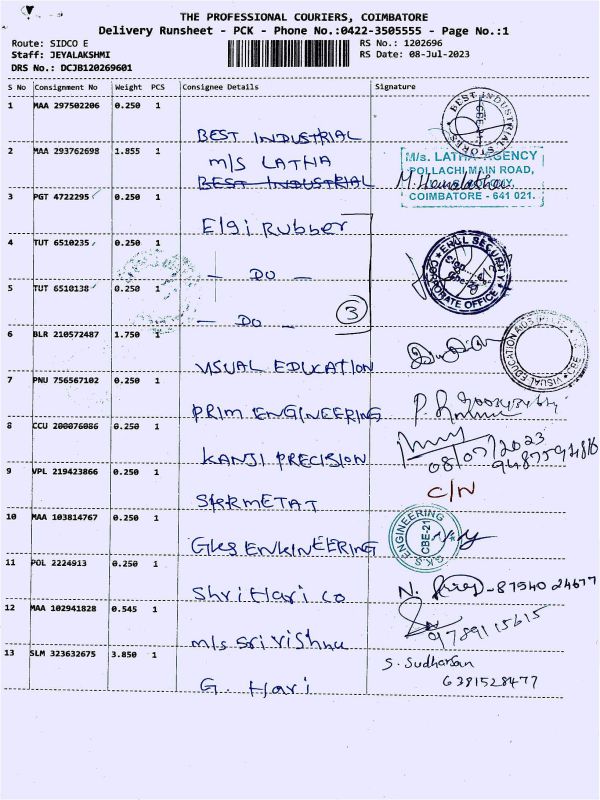 THE PROFESSIONAL COURIERS, COIMBATORE
Delivery Runsheet - PCK - Phone No.:0422-3505555 - Page No.:1
Route: SIDCO E
RS No.: 1202696
Staff: JEYALAKSHMI
RS Date: 08-Jul-2023
DRS No.: DCJB120269601
S No Consignment No Weight PCS Consignee Details Signature
1 MAA 297502206 0.250 1
BEST INDUSTRIAL
BEST INDUSTRIAL STORES CBE
2 MAA 293762698 1.855 1
M/S LATHA
BEST INDUSTRIAL
M/s. LATHA AGENCY
POLLACHI MAIN ROAD,
COIMBATORE - 641 021.
3 PGT 4722295 0.250 1
Elgi Rubber
4 TUT 6510235 0.250 1
- DO -
SECURITY
CORPORATE OFFICE
5 TUT 6510138 0.250 1
- DO -
3
6 BLR 210572487 1.750 1
VISUAL EDUCATION
VISUAL EDUCATION AIDS CBE
7 PNU 756567102 0.250 1
PRIM ENGINEERING
8 CCU 200076086 0.250 1
KANJI PRECISION
08/07/2023
9 VPL 219423866 0.250 1
C/N
10 MAA 103814767 0.250 1
GKS ENKINEERING
G.K.S. ENGINEERING CBE-21
11 POL 2224913 0.250 1
Shri Hari co
87540 24677
12 MAA 102941828 0.545 1
m/s Sri Vishnu
9789115615
13 SLM 323632675 3.850 1
G. Hari
S. Sudharsan
6381528477